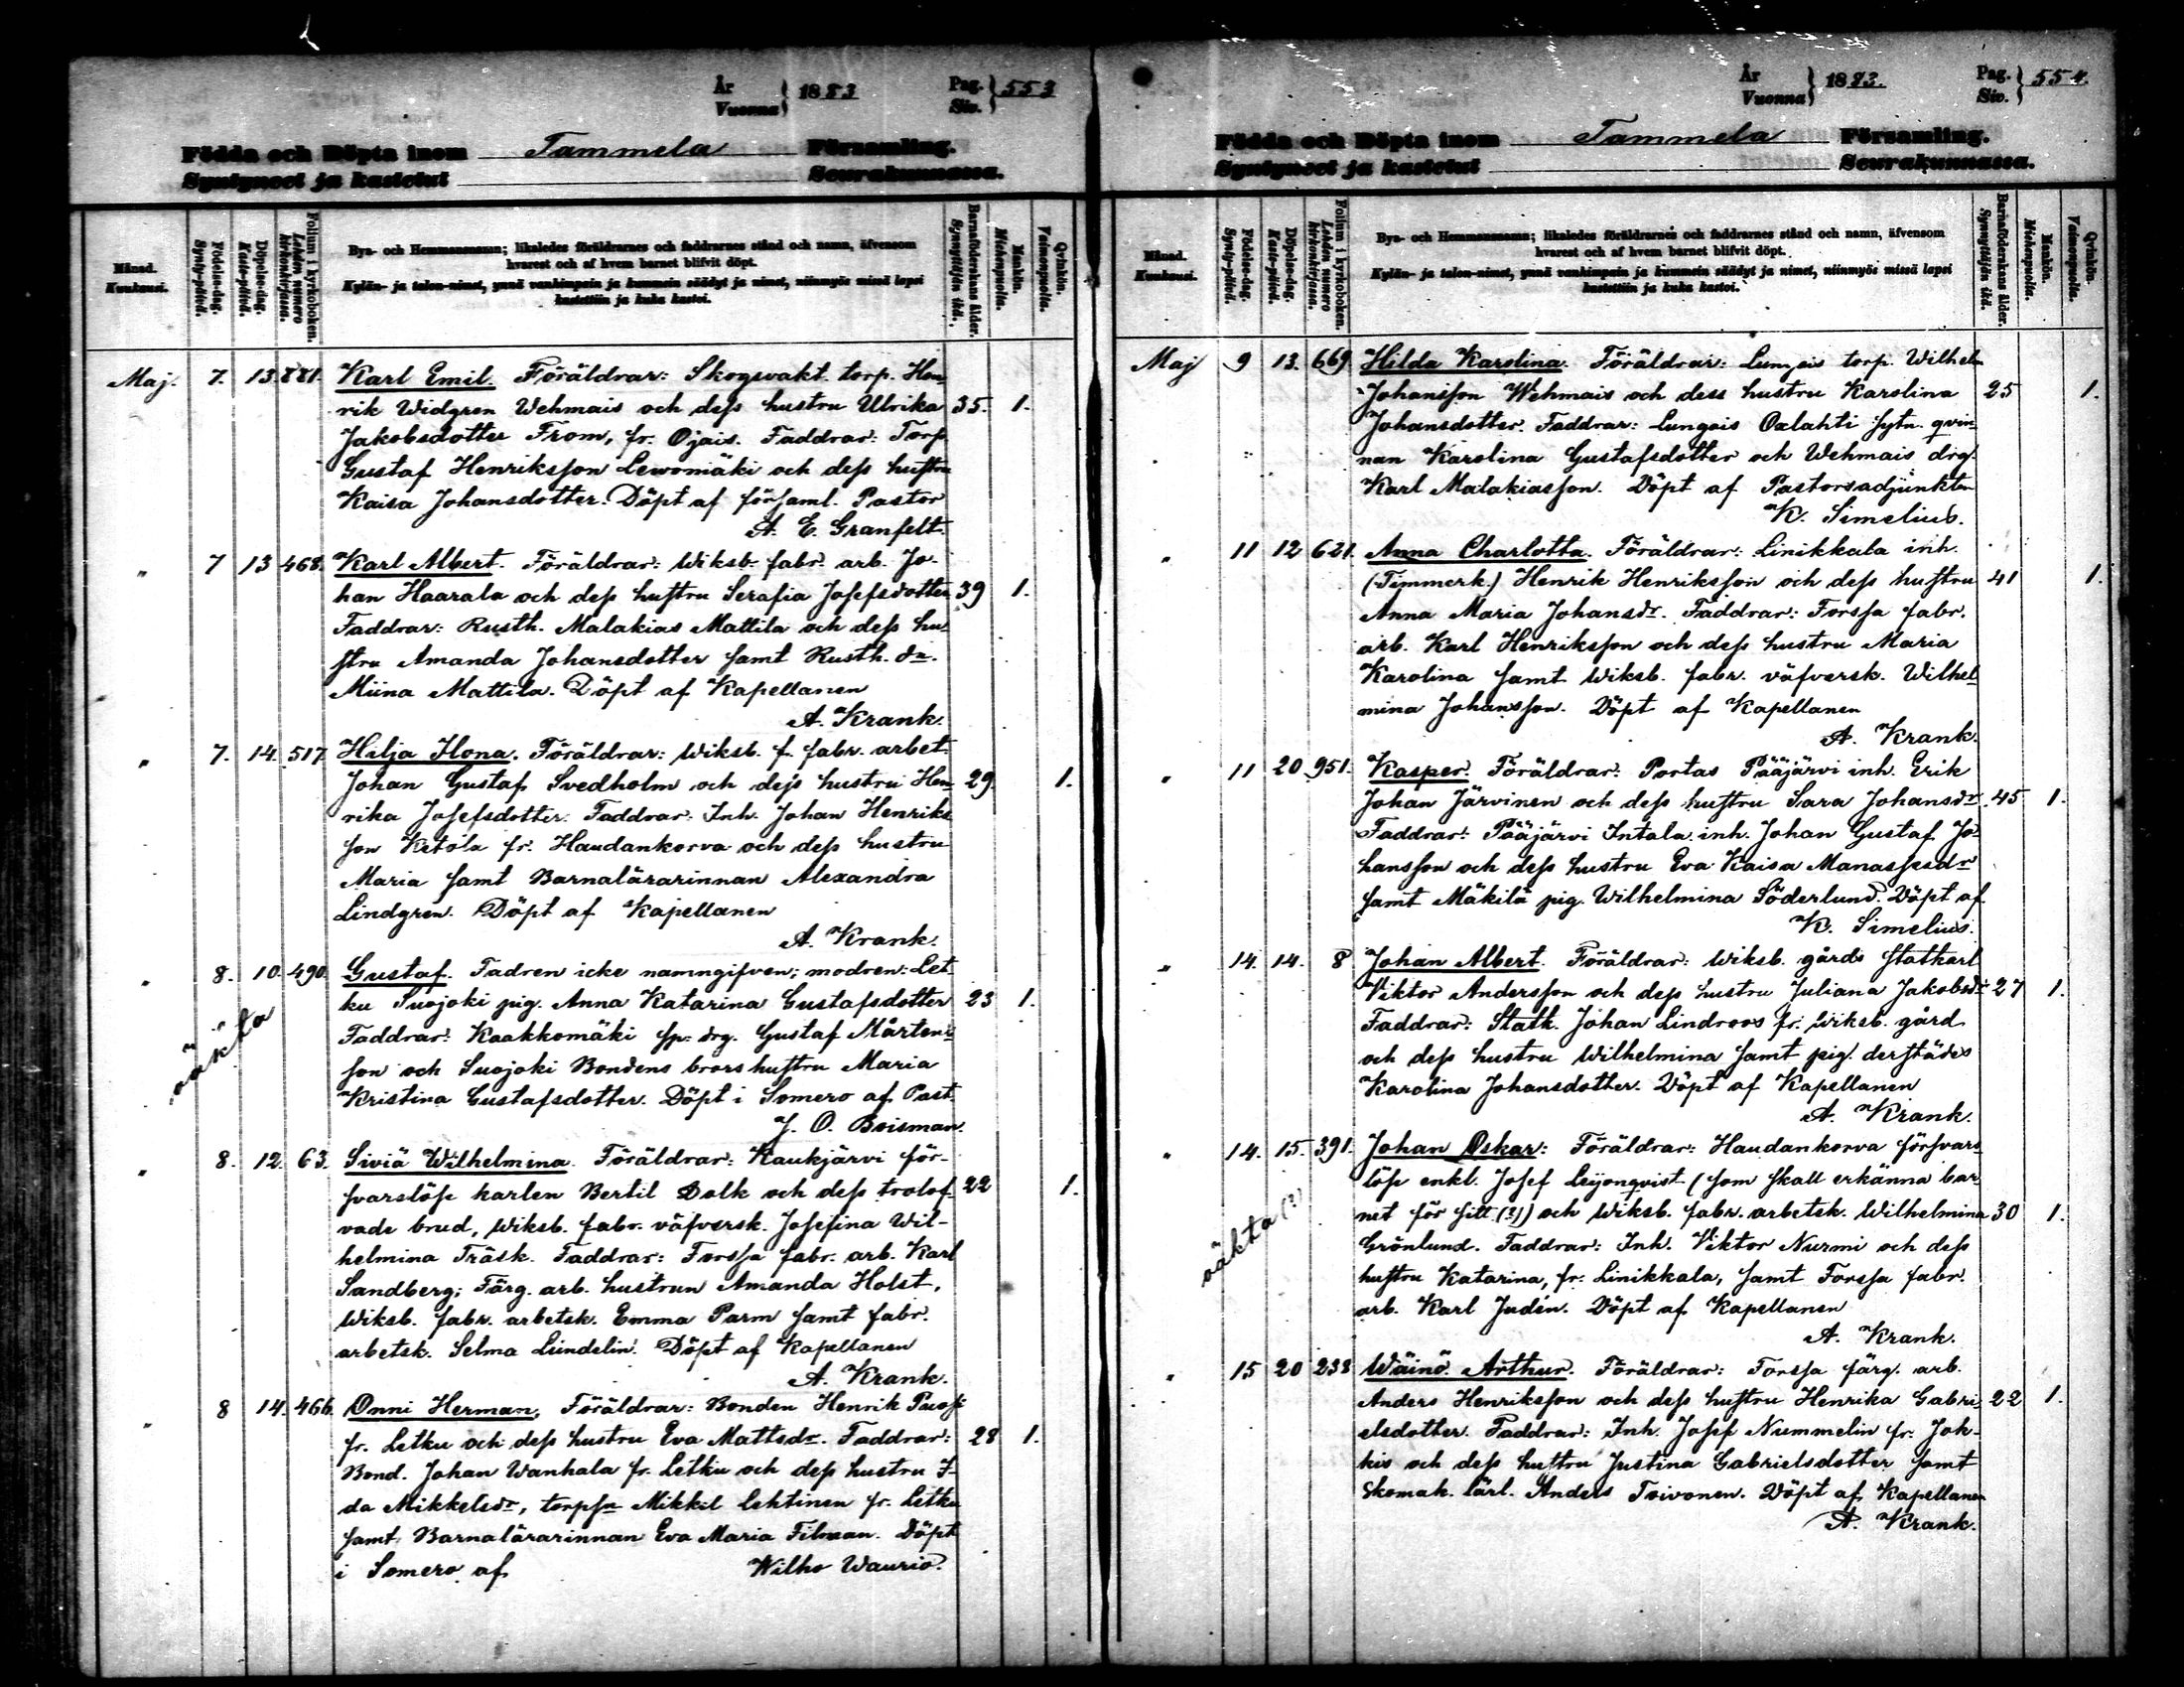 År
Vuonna
1883
Pag.
Siv.
553
Födda och Döpta inom Tammela Församling.
Syntyneet ja kastetut Seurakunnassa.
Månad.
Kuukausi.
Födelse-dag.
Synty-päivä.
Döpelse-dag.
Kaste-päivä.
Folium i kyrkoboken.
Lehden numero kirkonkirjassa.
Bya- och Hemmansnamn; likaledes föräldrarnes och faddrarnes stånd och namn, äfvensom
hvarest och af hvem barnet blifvit döpt.
Kylän- ja talon-nimet, ynnä vanhimpain ja kummein säädyt ja nimet, niinmyös missä lapsi
kastettiin ja kuka kastoi.
Barnaföderskans ålder.
Synnyttäjän ikä.
Mankön.
Miehenpuolta.
Qvinkön.
Vaimonpuolta.
Maj. 7. 13. 881. Karl Emil. Föräldrar: Skogsvakt. torp. Hen-
rik Widgren Wehmais och dess hustru Ulrika 35. 1.
Jakobsdotter From, fr. Ojais. Faddrar: Torp.
Gustaf Henriksson Lewomäki och dess hustru
Kaisa Johansdotter. Döpt af församl. Pastor
A. E. Granfelt.
" 7 13 468. Karl Albert. Föräldrar: Wiksb. fabr. arb. Jo-
han Haarala och dess hustru Serafia Josefsdotter 39 1.
Faddrar: Rusth. Malakias Mattila och dess hu-
stru Amanda Johansdotter samt Rusth. dr.
Miina Mattila. Döpt af Kapellanen
A. Krank.
" 7. 14. 517. Hilja Ilona. Föräldrar: Wiksb. f. fabr. arbet.
Johan Gustaf Svedholm och dess hustru Hen- 29. 1.
rika Josefsdotter. Faddrar: Inh. Johan Henriks-
son Ketola fr. Haudankorva och dess hustru
Maria samt Barnalärarinnan Alexandra
Lindgren. Döpt af Kapellanen
A. Krank.
" 8. 10. 490. Gustaf. Fadren icke namngifven; modren: Let-
ku Suojoki pig. Anna Katarina Gustafsdotter 23 1.
oäkta
Faddrar: Kaakkomäki sp. drg. Gustaf Mårtens-
son och Suojoki Bondens brors hustru Maria
Kristina Gustafsdotter. Döpt i Somero af Past.
J. O. Boisman.
" 8. 12. 63. Siviä Wilhelmina. Föräldrar: Kaukjärvi för-
svarslöse karlen Bertil Dolk och dess trolof- 22 1.
vade brud, Wiksb. fabr. väfversk. Josefina Wil-
helmina Träsk. Faddrar: Forssa fabr. arb. Karl
Sandberg; Färg. arb. hustrun Amanda Holst,
Wiksb. fabr. arbetsk. Emma Parm samt fabr.
arbetsk. Selma Lundelin. Döpt af Kapellanen
A. Krank.
" 8 14. 466. Onni Herman, Föräldrar: Bonden Henrik
fr. Letku och dess hustru Eva Mattsdr. Faddrar: 28 1.
Bond. Johan Wanhala fr. Letku och dess hustru I-
da Mikkelsdr, torpsn Mikkel Lehtinen fr. Letku
samt Barnalärarinnan Eva Maria Filman. Döpt
i Somero af Wilho Waurio.
År
Vuonna
1883.
Pag.
Siv.
554.
Födda och Döpta inom Tammela Församling.
Syntyneet ja kastetut Seurakunnassa.
Månad.
Kuukausi.
Födelse-dag.
Synty-päivä.
Döpelse-dag.
Kaste-päivä.
Folium i kyrkoboken.
Lehden numero kirkonkirjassa.
Bya- och Hemmansnamn; likaledes föräldrarnes och faddrarnes stånd och namn, äfvensom
hvarest och af hvem barnet blifvit döpt.
Kylän- ja talon-nimet, ynnä vanhimpain ja kummein säädyt ja nimet, niinmyös missä lapsi
kastettiin ja kuka kastoi.
Barnaföderskans ålder.
Synnyttäjän ikä.
Mankön.
Miehenpuolta.
Qvinkön.
Vaimonpuolta.
Maj 9 13. 669 Hilda Karolina. Föräldrar: Lungois torp. Wilhelm
Johansson Wehmais och dess hustru Karolina 25 1.
Johansdotter. Faddrar: Lungois Oxlahti sytn. qvin-
nan Karolina Gustafsdotter och Wehmais drg.
Karl Malakiasson. Döpt af Pastorsadjunkten
K. Simelius.
" 11 12 621. Anna Charlotta. Föräldrar: Linikkala inh.
(Timmerk.) Henrik Henriksson och dess hustru 41 1.
Anna Maria Johansdr. Faddrar: Forssa fabr.
arb. Karl Henriksson och dess hustru Maria
Karolina samt Wiksb. fabr. väfversk. Wilhel-
mina Johansson. Döpt af Kapellanen
A. Krank.
" 11 20 951. Kasper. Föräldrar: Portas Pääjärvi inh. Erik
Johan Järvinen och dess hustru Sara Johansdr 45 1.
Faddrar: Pääjärvi Intala inh. Johan Gustaf Jo-
hansson och dess hustru Eva Kaisa Manassesdr
samt Mäkilä pig. Wilhelmina Söderlund. Döpt af
K. Simelius.
" 14. 14. 8 Johan Albert. Föräldrar: Wiksb. gårds statkarl
Viktor Andersson och dess hustru Juliana Jakobsdr 27 1.
Faddrar: Statk. Johan Lindroos fr. Wiksb. gård
och dess hustru Wilhelmina samt pig. derstädes
Karolina Johansdotter. Döpt af Kapellanen
A. Krank.
" 14. 15. 391. Johan Oskar: Föräldrar: Haudankorva försvars-
löse enkl. Josef Leijonqvist (som skall erkänna bar-
oäkta (?)
net för sitt (?)) och Wiksb. fabr. arbetsk. Wilhelmina 30 1.
Grönlund. Faddrar: Inh. Viktor Nurmi och dess
hustru Katarina, fr. Linikkala, samt Forssa fabr.
arb. Karl Judén. Döpt af Kapellanen
A. Krank.
" 15 20 238 Wäinö Arthur. Föräldrar: Forssa färg. arb.
Anders Henriksson och dess hustru Henrika Gabri- 22 1.
elsdotter. Faddrar: Inh. Josef Nummelin fr. Jok-
kis och dess hustru Justina Gabrielsdotter samt
Skomak. lärl. Anders Toivonen. Döpt af Kapellanen
A. Krank.